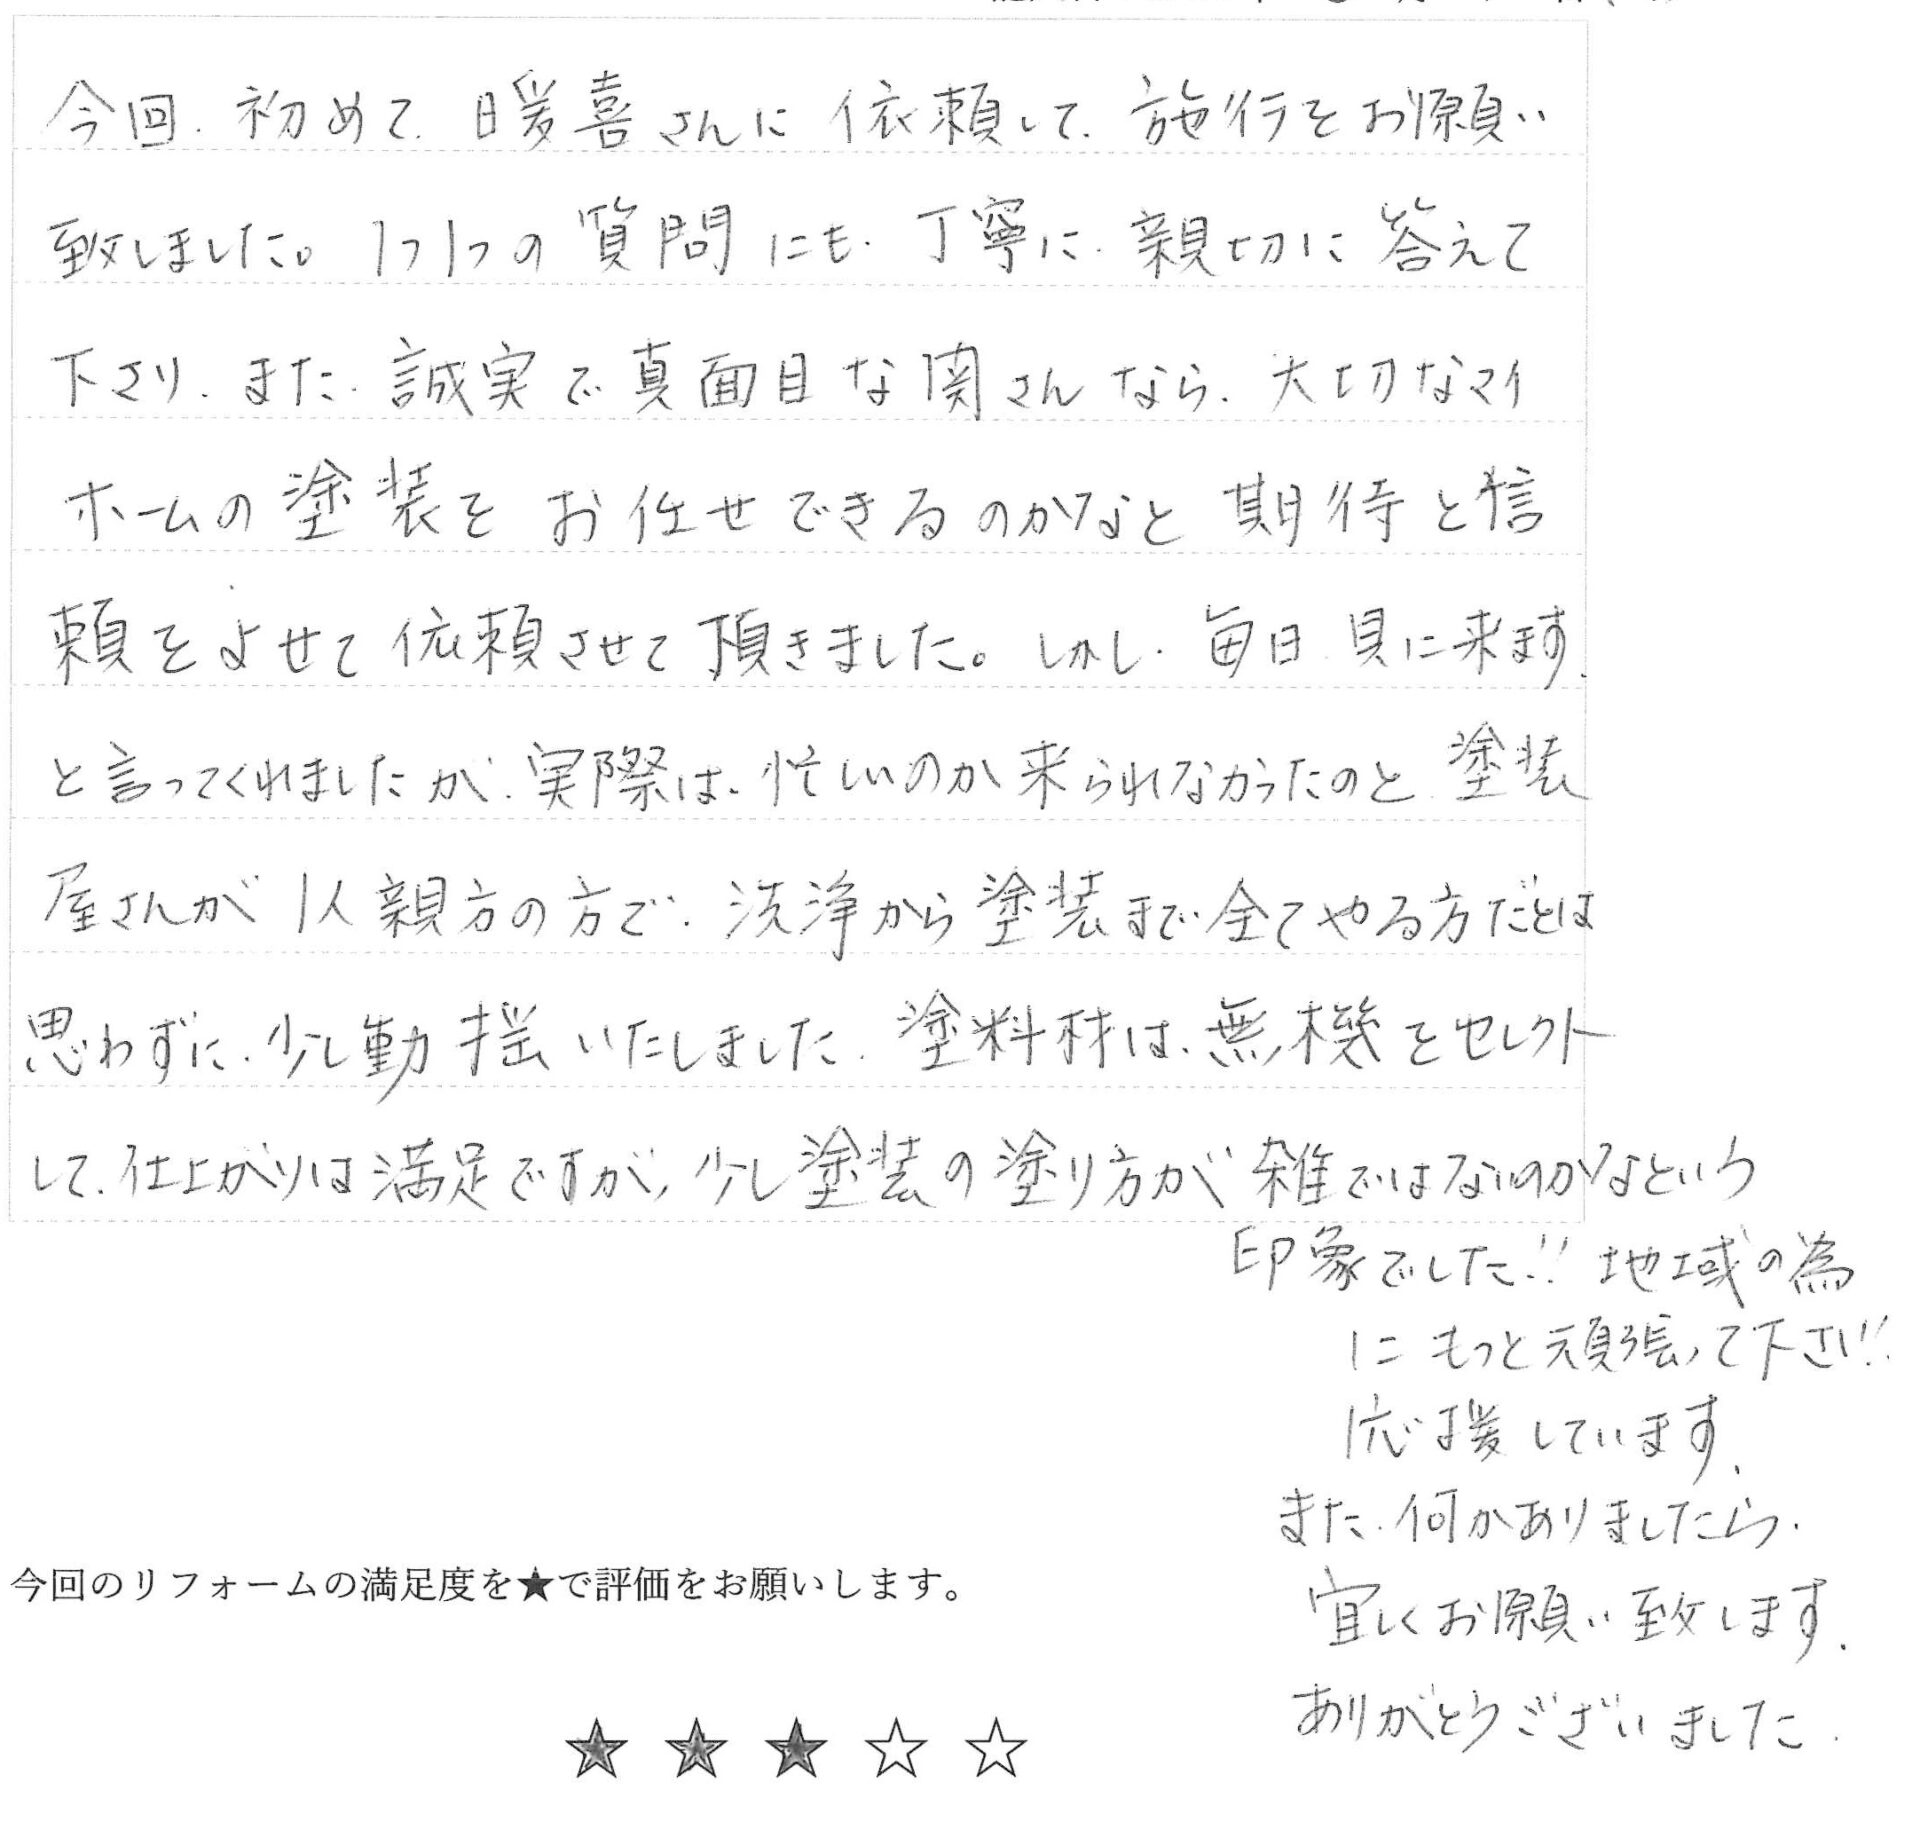 今回、初めて、暖喜さんに依頼して、施行をお願い
致しました。1つ1つの質問にも、丁寧に、親切に答えて
下さり、また、誠実で真面目な関さんなら、大切なマイ
ホームの塗装をお任せできるのかなと期待と信
頼をよせて依頼させて頂きました。しかし、毎日見に来ます、
と言ってくれましたが、実際は、忙しいのか来られなかったのと、塗装
屋さんが1人親方の方で、洗浄から塗装まで全てやる方だとは
思わずに、少し動揺いたしました。塗料材は、無機をセレクト
して、仕上がりは満足ですが、少し塗装の塗り方が雑ではないのかなという
印象でした!! 地域の為
にもっと頑張って下さい!!
応援しています。
また、何かありましたら、
宜しくお願い致します。
ありがとうございました。
今回のリフォームの満足度を★で評価をお願いします。
★★★☆☆